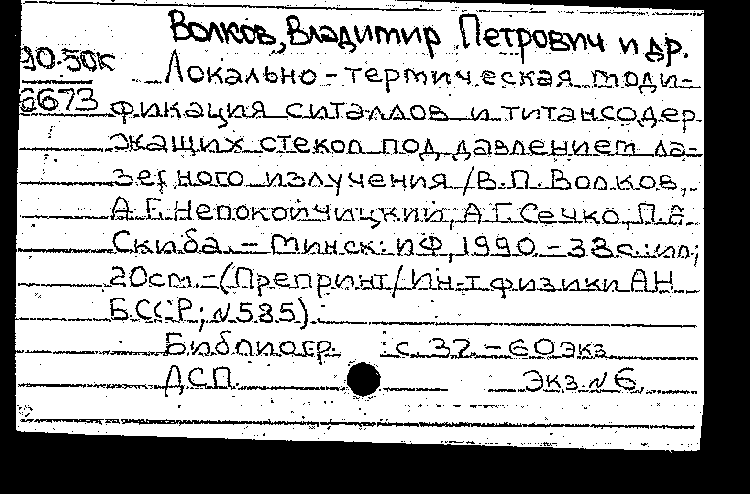 Волков, Владимир Петрович и др.
90-50к Локально-термическая моди-
6673 фикация ситаллов и титансодер
жащих стекол под давлением ла-
зерного излучения / В.П. Волков,
А.Г. Непокойчицкий, А.Г. Сечко, П.А.
Скиба. - Минск: ИФ, 1990. - 38с.: ил;
20см. - (Препринт / Ин-т физики АН
БССР; N585).
Библиогр. : с. 37. - 60 экз
ДСП. Экз. N6.